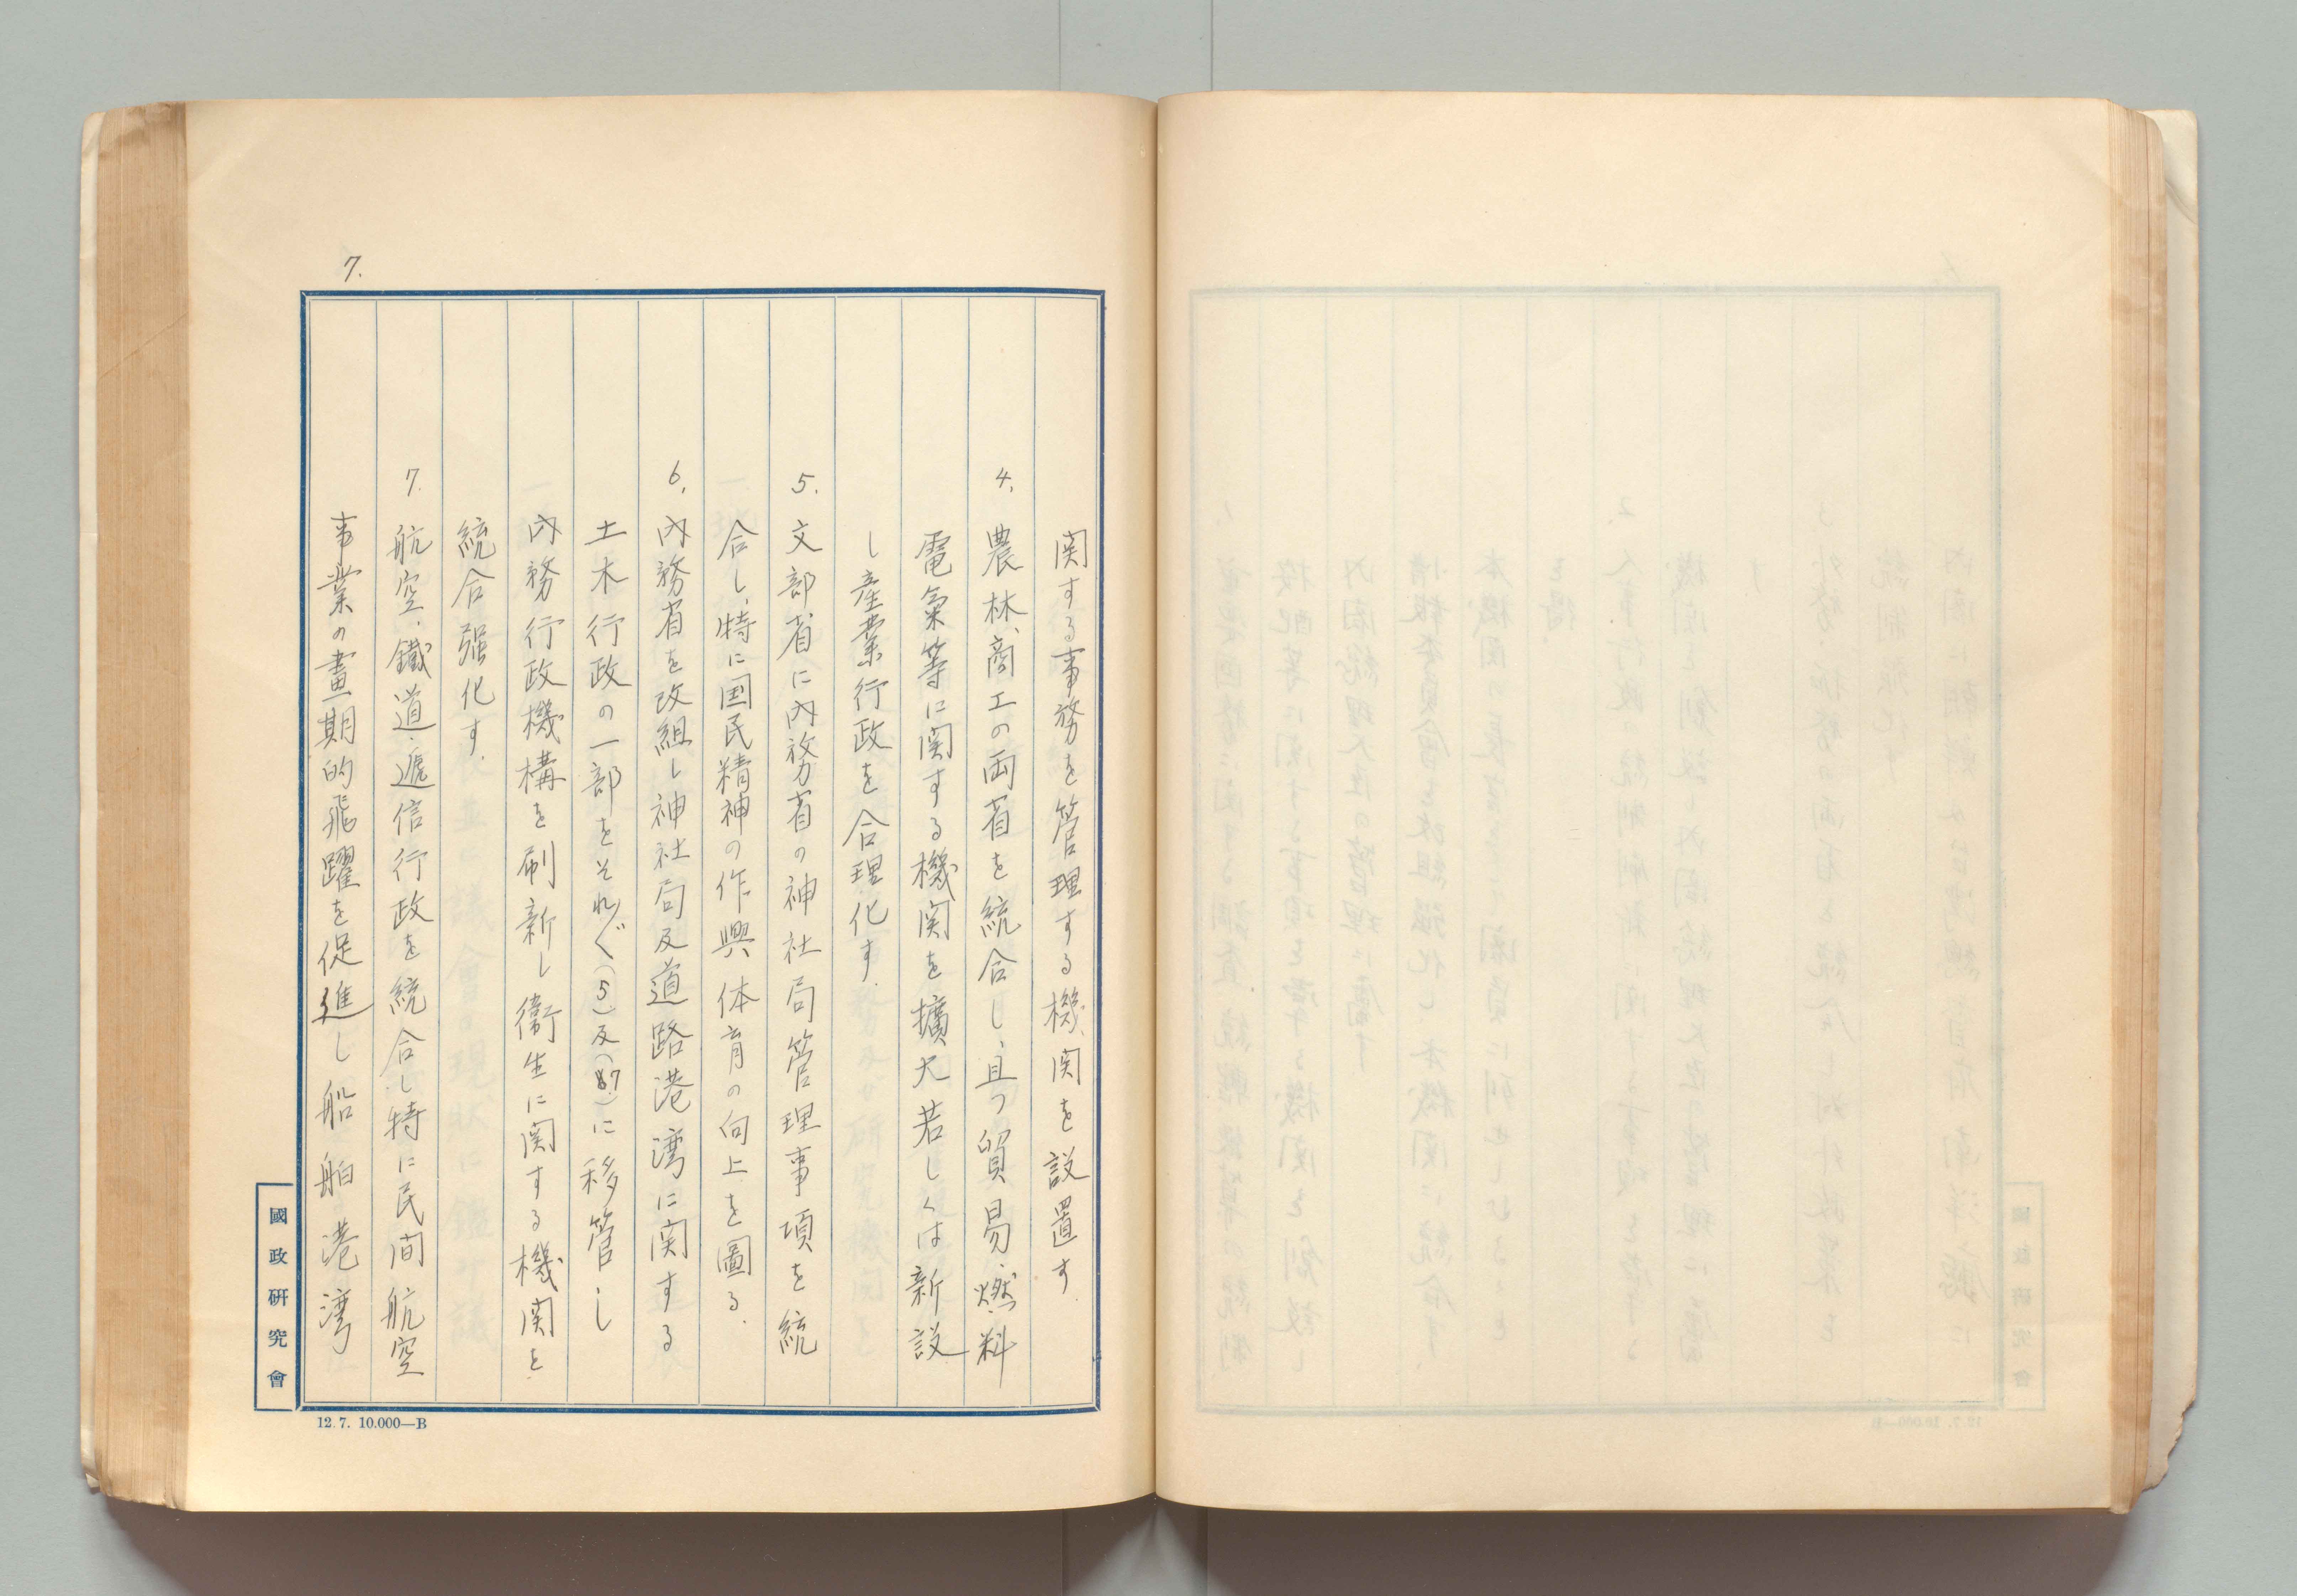 7.
関する事務を管理する機関を設置す.
4. 農林、商工の両省を統合し、且つ貿易、燃料
電氣等に関する機関を擴大若しくは新設
し産業行政を合理化す.
5. 文部省に内務省の神社局管理事項を統
合し、特に国民精神の作興体育の向上を圖る.
6. 内務省を改組し神社局及道路港湾に関する
土木行政の一部をそれ〴〵(5)及(7)に移管し
内務行政機構を刷新し衞生に関する機関を
統合强化す.
7. 航空、鐵道、遞信行政を統合し特に民间航空
事業の畫期的飛躍を促進し船舶港湾
國政硏究會
12.7. 10.000—B